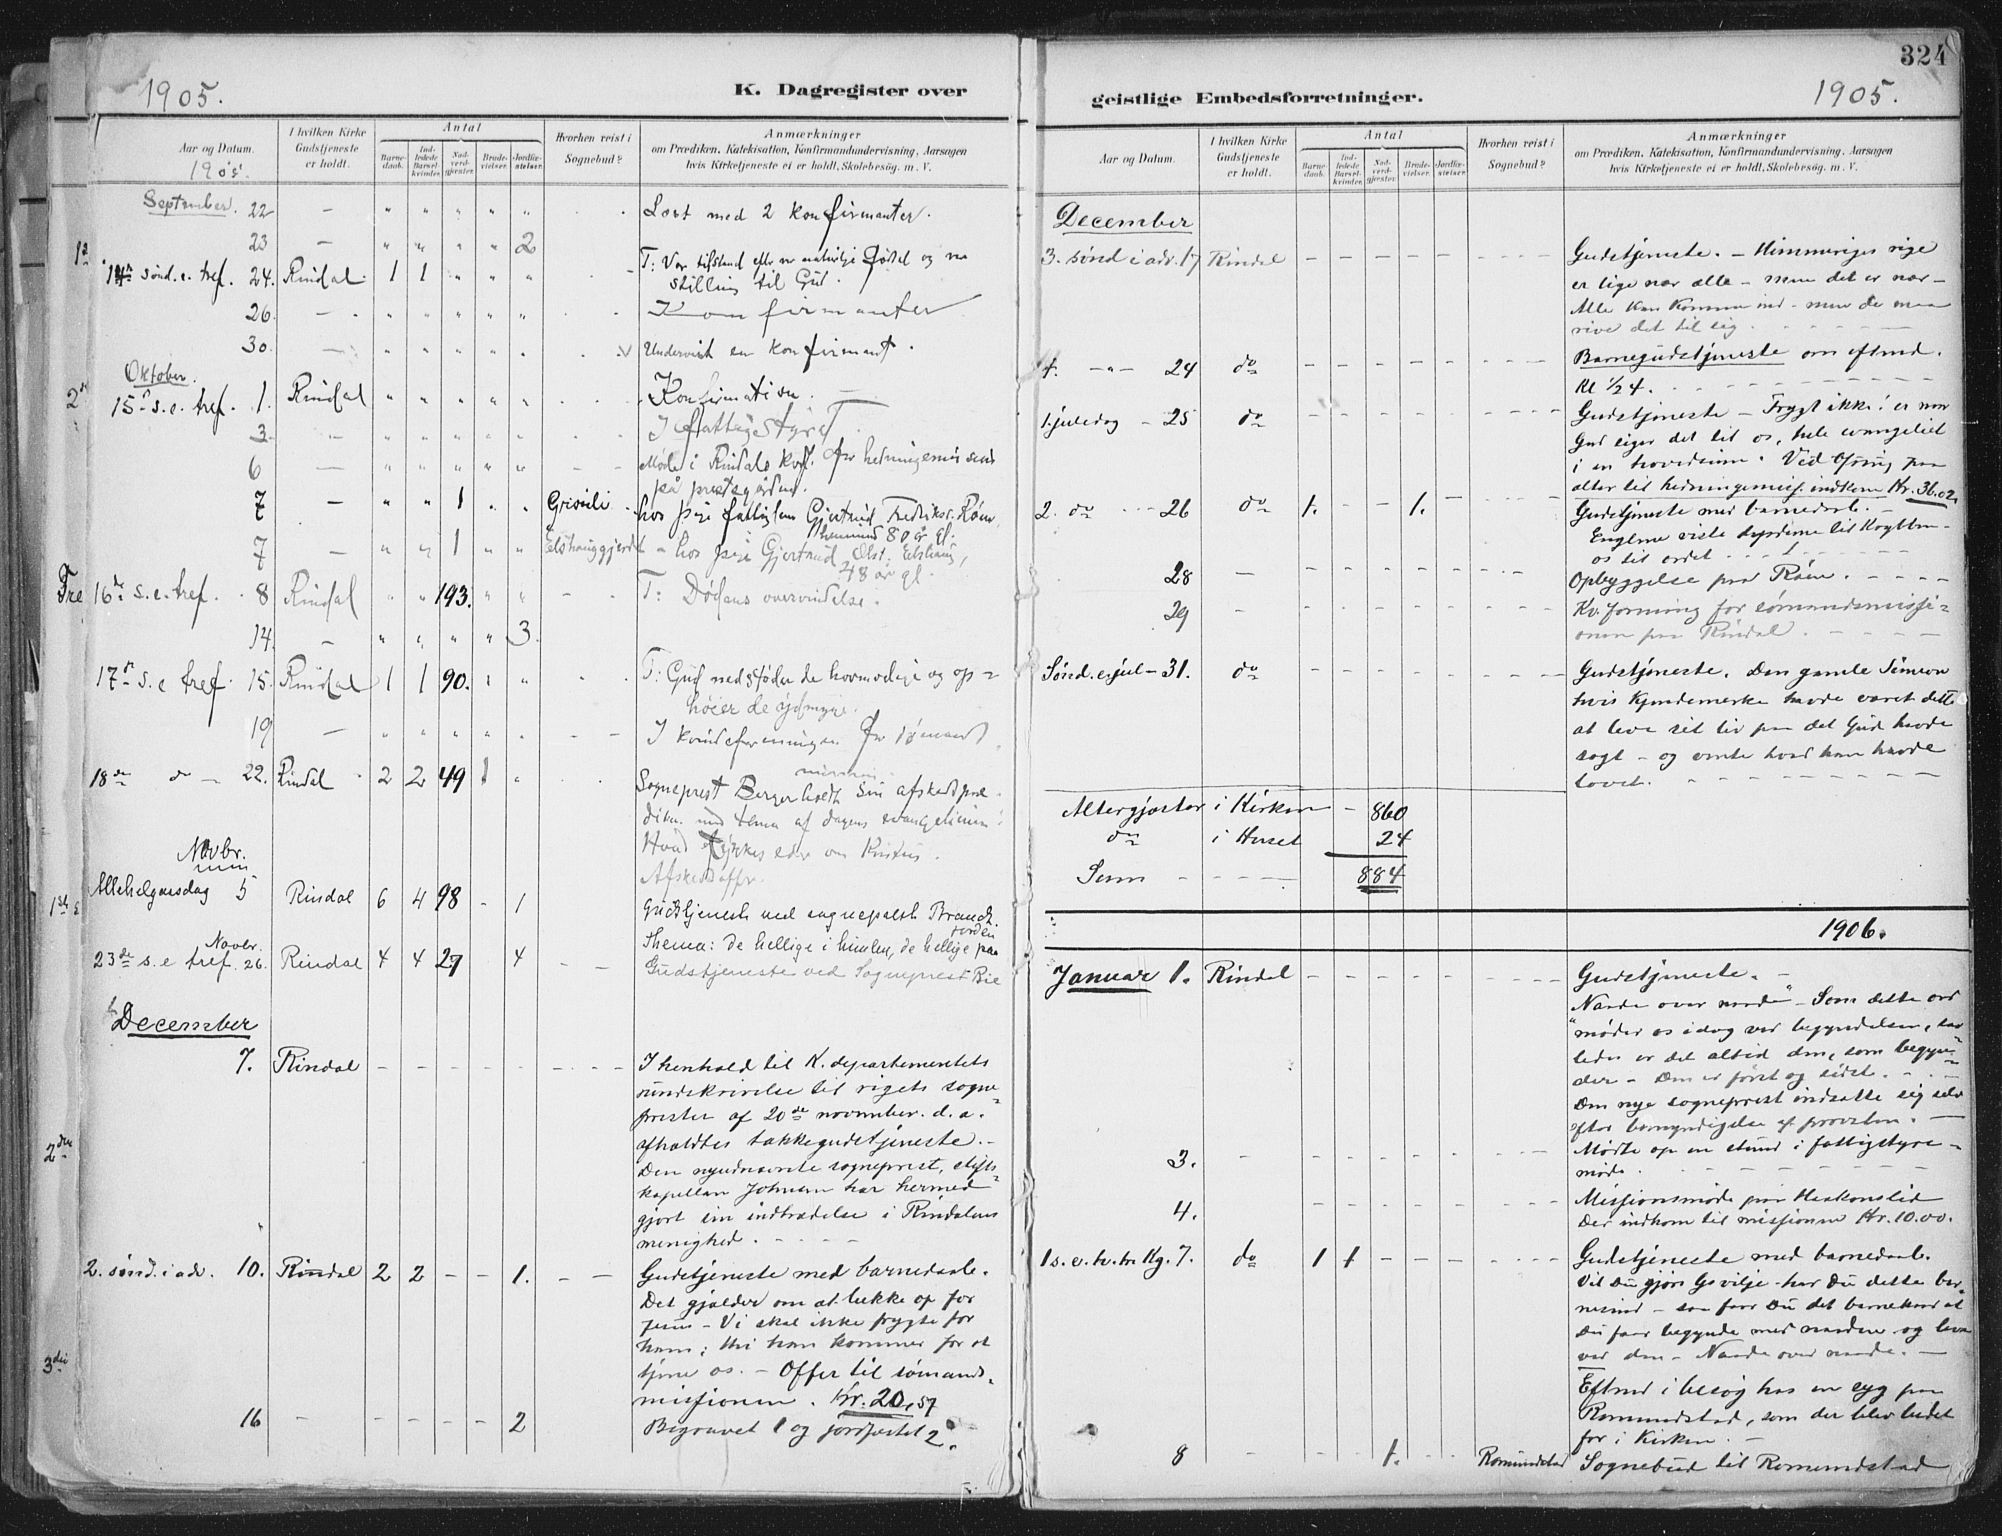 1905.
K. Dagregister over
Aar og Datum.
1905.
I hvilken Kirke Gudstjeneste er holdt.
Antal
Barnedaab.
Indledede Barselkvinder.
Nadverdgjester.
Brudevielser.
Jordfæstelser.
Hvorhen reist i Sognebud?
Anmærkninger
om Prædiken, Katekisation, Konfirmandundervisning, Aarsagen
hvis Kirketjeneste ei er holdt, Skolebesøg. m. V.
September. 22 – " " " " " Læst med 2 konfirmanter.
23 – " " " " 2
14de sønd. e. tref. 24. Rindal 1 1 " " " T: Vor tilstand efter vor naturlige fødsel og vor
stilling til Gud.
26. – " " " " " Konfirmanter
30. – " " " " " Undervist en konfirmant.
Oktober.
2de
15de s. e. tref. 1. Rindal " " " " " Konfirmation.
3. – " " " " " I fattigstyret
6 – " " " " " Møde i Rindals for hedningemis
på prestegården.
7 – " " 1 " " hos pige fattiglem Gjertrud Fredriksd. Røen
80 år gl.
7 – " " 1 " " hos pige Gjertrud Olsd.
48 år gl.
16de s. e. tref. 8 Rindal " " 193. " " T: Dødens overvindelse.
14. – " " " " 3.
17de s. e. tref. 15. Rindal 1 1 90. " " T: Gud nedstøder de hovmodige og op=
høier de ydmyge.
19 – " " " " " I kvindeforeningen for sømand
18de do – 22. Rindal 2 2 49 1 " Sogneprest Bergerholdt sin afskedspræ
diken med tema af dagens evangelium:
Hvad tykkes eder om Kristus.
Afskedsoffer.
Novbr.
Allehelgensdag 5 Rindal 6 4 98 - 1 Gudstjeneste ved sogneprest Brandt
Thema: De hellige i himlen, de hellige paa
jorden
23de s. e. tref. Novbr. 26. Rindal 4 4 29 4 – – Gudstjeneste ved Sogneprest Bie
December
7. Rindal – – – – – – I henhold til K. departementets
rundskrivelse til rigets sogne=
prester af 20de november. d. a.
afholdtes takkegudstjeneste. –
Den nyudnævnte sogneprest, stifts=
kapellan Johnsen har hermed
gjort sin indtrædelse i Rindalens
menighed. – – – –
2. sønd. i adv. 10. Rindal 2 2 – – 1. – – Gudstjeneste med barnedaab.
Det gjælder om at lukke op for
Jesus – Vi skal ikke frygte for
ham; thi han kommer for at
tjene os. – Offer til sømands=
missionen. Kr. 20,57
16 – – – – – 2 Begravet 1 og jordfæstet 2.
324
geistlige Embedsforretninger.
1905.
Aar og Datum.
I hvilken Kirke Gudstjeneste er holdt.
Antal
Barnedaab.
Indledede Barselkvinder.
Nadverdgjester.
Brudevielser.
Jordfæstelser.
Hvorhen reist i Sognebud?
Anmærkninger
om Prædiken, Katekisation, Konfirmandundervisning, Aarsagen
hvis Kirketjeneste ei er holdt, Skolebesøg. m. V.
December
3. sønd i adv. 17 Rindal – – – – – Gudstjeneste. – Himmeriges rige
er lige nær alle – men det er nær –
Alle kan komme ind – men de maa
rive det til sig.
4. –"– 24 do – – – – – Barnegudstjeneste om efterm.
Kl 1/2 4.
1. juledag – 25 do – – – – – Gudstjeneste – Frygt ikke! er nær
Gud siger det til os, hele evangeliet
i en hovedsum. Ved ofring paa
alter til hedningemis. indkom Kr. 36.02.
2. do – 26 do 1. – – 1. Gudstjeneste med barnedaab. –
Englene viste hyrderne til krybben –
os til ordet
28 – Opbyggelse paa Røen.
29 – Kv. forening for sømandsmissi=
onen paa Rindal.
Sønd. e. jul – 31. do – – – – – Gudstjeneste. Den gamle Simeon
hvis kjendemerke havde været dette
at leve sit liv paa det Gud havde
sagt – og vente hvad han havde
lovet.
Altergjæster i Kirken – 860
do i Huset 24
Sum – – – – 884
1906.
Januar 1. Rindal – – – – – Gudstjeneste. –
"Naade over naade" – Som dette ord
møder os idag ved begyndelsen, saa=
ledes er det altid den, som begyn=
der – Den er først og sidst.
Den nye sogneprest indsatte sig selv
efter bemyndigelse af provsten. –
3. – Mødte op en stund i fattigstyre=
møde.
4. Missionsmøde paa Haakonslid
Der indkom til missionen Kr. 10.00.
1 s. e. h. tr. Kg. 7. do 1 1 – – – Gudstjeneste med barnedaab.
Vil Du gjøre Gs vilje – har Du dette bar=
nesind – saa faar Du det barnekaar at
Du faar begynde med naaden og leve
ved den – Naade over naade. –
Efterm i besøg hos en syg paa
Romundstad, som der blev bedet
for i Kirken. –
8 – – – 1. – – Romundstad Sognebud til Romundstad